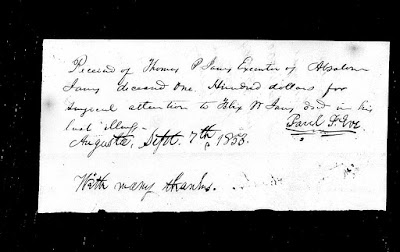 Received of Thomas P Janes Executor of Absolom
Janes deceased One Hundred dollars for
surgical attention to Felix W Janes decd in his
last illness.
Paul F. Eve
Augusta, Sept. 7th, 1855.
With many thanks.